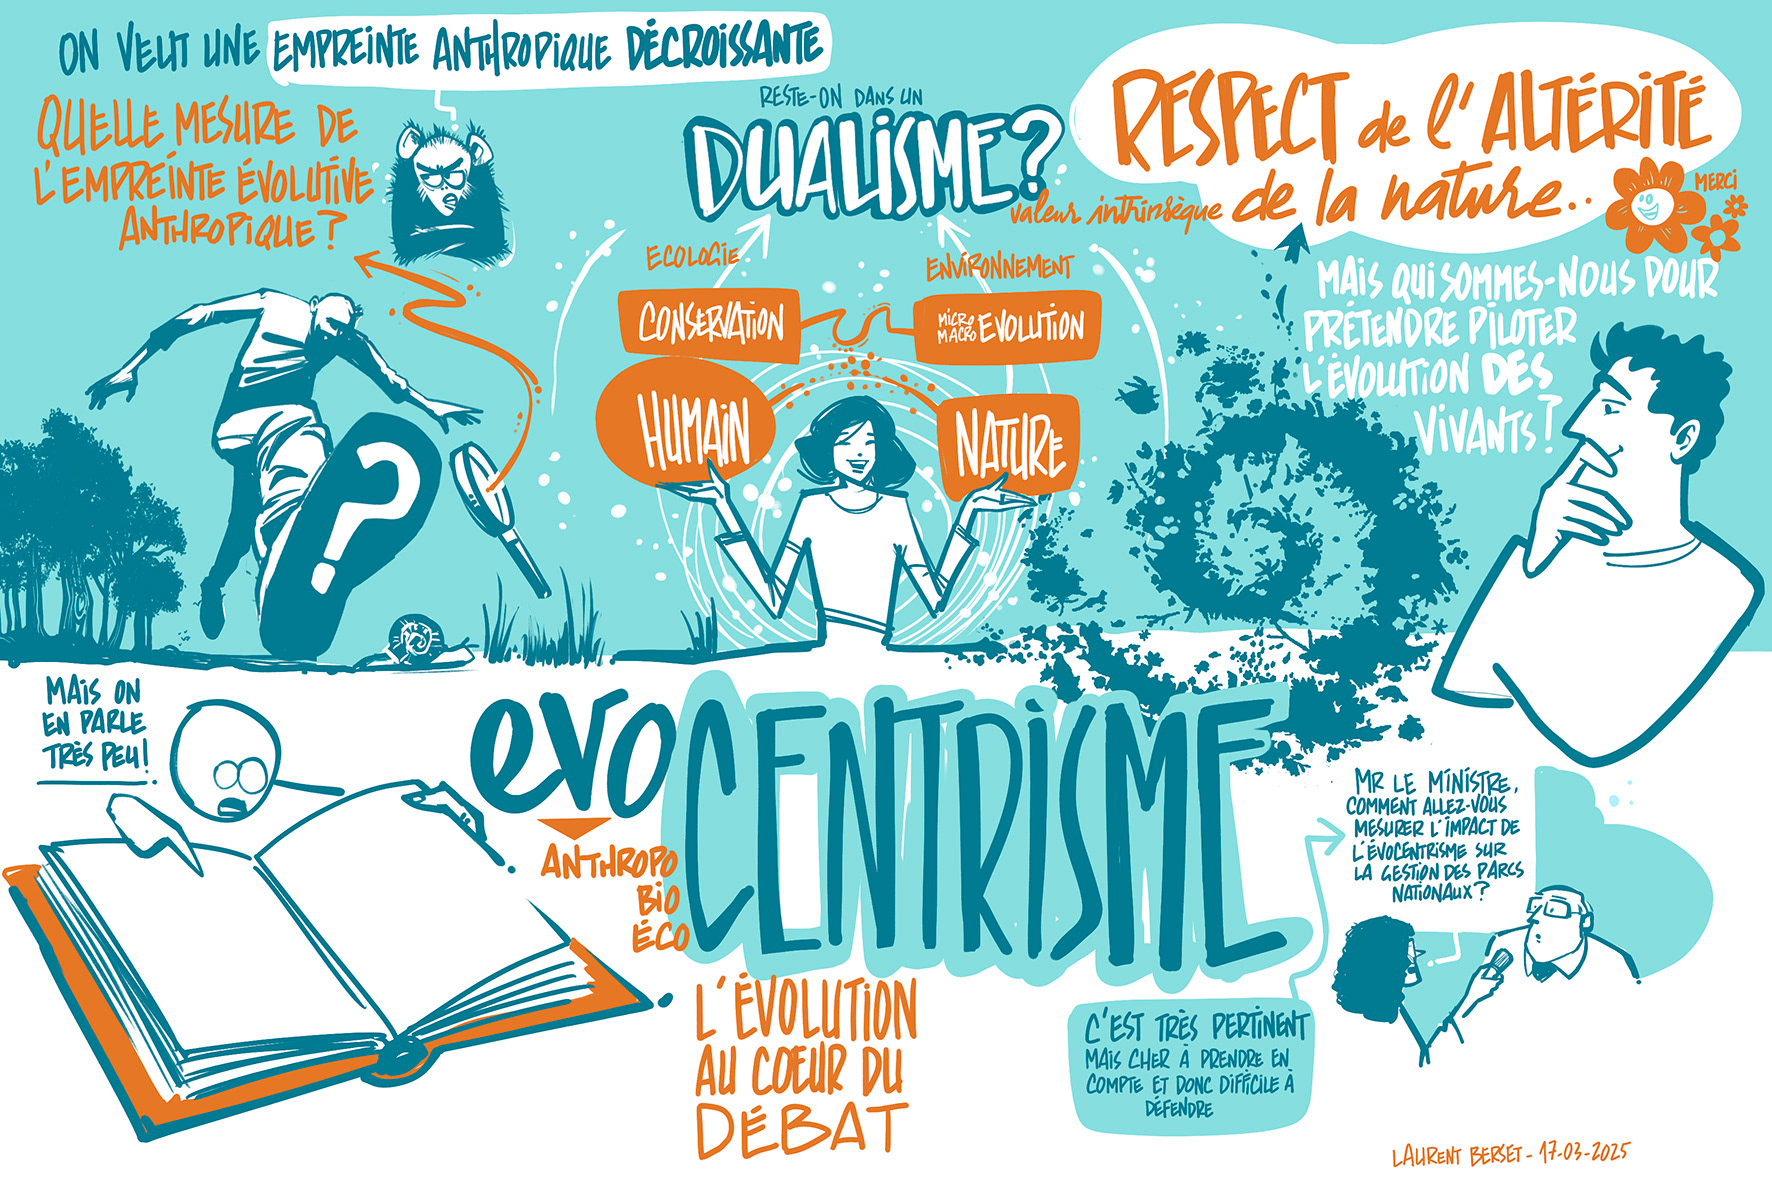 ON VEUT UNE EMPREINTE ANTHROPIQUE DÉCROISSANTE
QUELLE MESURE DE
L'EMPREINTE ÉVOLUTIVE
ANTHROPIQUE ?
RESTE-ON DANS UN
DUALISME ?
ECOLOGIE
ENVIRONNEMENT
CONSERVATION
MICRO
MACRO EVOLUTION
HUMAIN
NATURE
RESPECT de l'ALTÉRITÉ
valeur intrinsèque de la nature..
MERCI
MAIS QUI SOMMES-NOUS POUR
PRÉTENDRE PILOTER
L'ÉVOLUTION DES
VIVANTS ?
?
MAIS ON
EN PARLE
TRÈS PEU !
evoCENTRISME
ANTHROPO
BIO
ÉCO
L'ÉVOLUTION
AU COEUR DU
DÉBAT
MR LE MINISTRE,
COMMENT ALLEZ-VOUS
MESURER L'IMPACT DE
L'ÉVOCENTRISME SUR
LA GESTION DES PARCS
NATIONAUX ?
C'EST TRÈS PERTINENT
MAIS CHER À PRENDRE EN
COMPTE ET DONC DIFFICILE À
DÉFENDRE
LAURENT BERSET - 17-03-2025